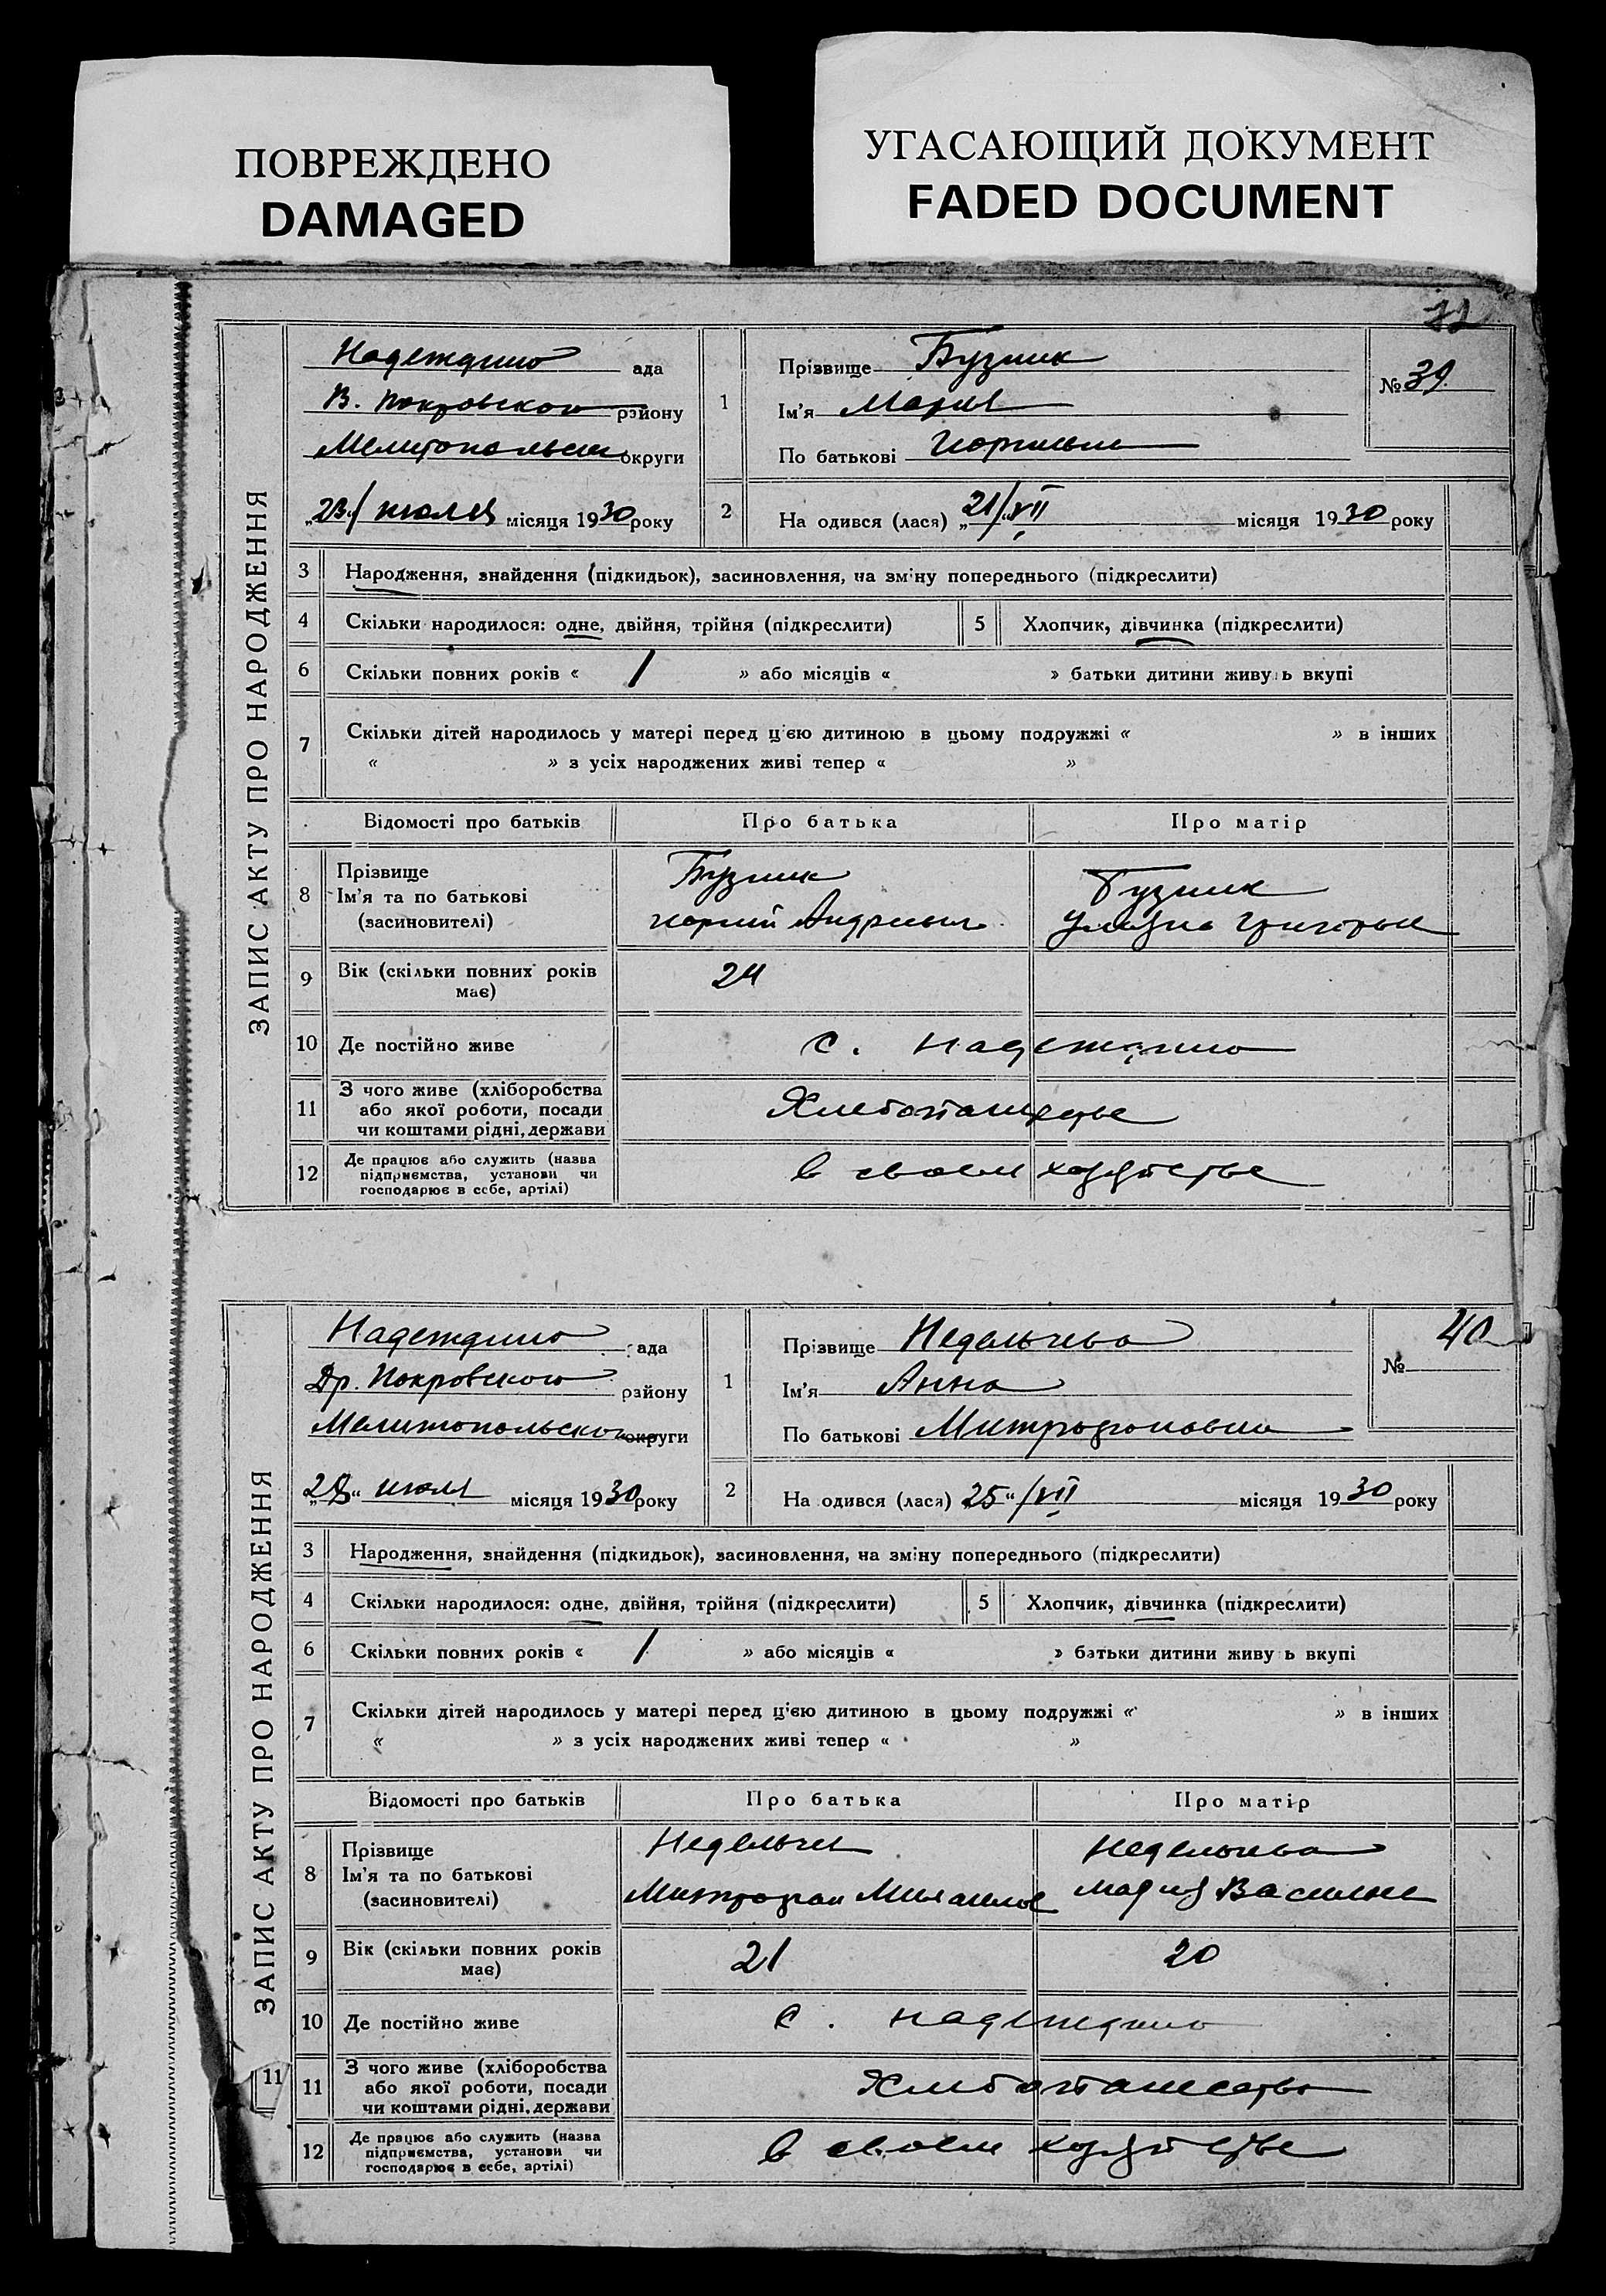 ПОВРЕЖДЕНО
DAMAGED
УГАСАЮЩИЙ ДОКУМЕНТ
FADED DOCUMENT
ЗАПИС АКТУ ПРО НАРОДЖЕННЯ
Надеждино ада
В. Покровского району
Мелитопольск округи
„23“/ июля місяця 1930 року
1
Прізвище Бузник
Ім'я Мария
По батькові
№ 39
2
На одився (лася) „21/“ VII місяця 1930 року
3 Народження, знайдення (підкидьок), засиновлення, на зміну попереднього (підкреслити)
4 Скільки народилося: одне, двійня, трійня (підкреслити) 5 Хлопчик, дівчинка (підкреслити)
6 Скільки повних років « / » або місяців « » батьки дитини живу ь вкупі
7 Скільки дітей народилось у матері перед ц'єю дитиною в цьому подружжі « » в інших
« » з усіх народжених живі тепер « »
Відомості про батьків Про батька Про матір
8 Прізвище
Ім'я та по батькові
(засиновителі)
Бузник
Андреевич
Бузник
9 Вік (скільки повних років
має)
24
10 Де постійно живе с. Надеждино
11 З чого живе (хліборобства
або якої роботи, посади
чи коштами рідні, держави
Хлебопашество
12 Де працює або служить (назва
підприємства, установи чи
господарює в себе, артілі)
в своем хозяйстве
ЗАПИС АКТУ ПРО НАРОДЖЕННЯ
Надеждино ада
Др. Покровского району
Мелитопольского округи
„28“ июля місяця 1930 року
1
Прізвище Недельчева
Ім'я Анна
По батькові Митрофановна
№ 40
2
На одився (лася) 25“/VII місяця 1930 року
3 Народження, знайдення (підкидьок), засиновлення, на зміну попереднього (підкреслити)
4 Скільки народилося: одне, двійня, трійня (підкреслити) 5 Хлопчик, дівчинка (підкреслити)
6 Скільки повних років « / » або місяців « » батьки дитини живу ь вкупі
7 Скільки дітей народилось у матері перед ц'єю дитиною в цьому подружжі « » в інших
« » з усіх народжених живі тепер « »
Відомості про батьків Про батька Про матір
8 Прізвище
Ім'я та по батькові
(засиновителі)
Недельчев
Митрофан Михайлов
Недельчева
Мария Василье
9 Вік (скільки повних років
має)
21 20
10 Де постійно живе с. Надеждино
11
11 З чого живе (хліборобства
або якої роботи, посади
чи коштами рідні, держави
Хлебопашество
12 Де працює або служить (назва
підприємства, установи чи
господарює в себе, артілі)
в своем хозяйстве